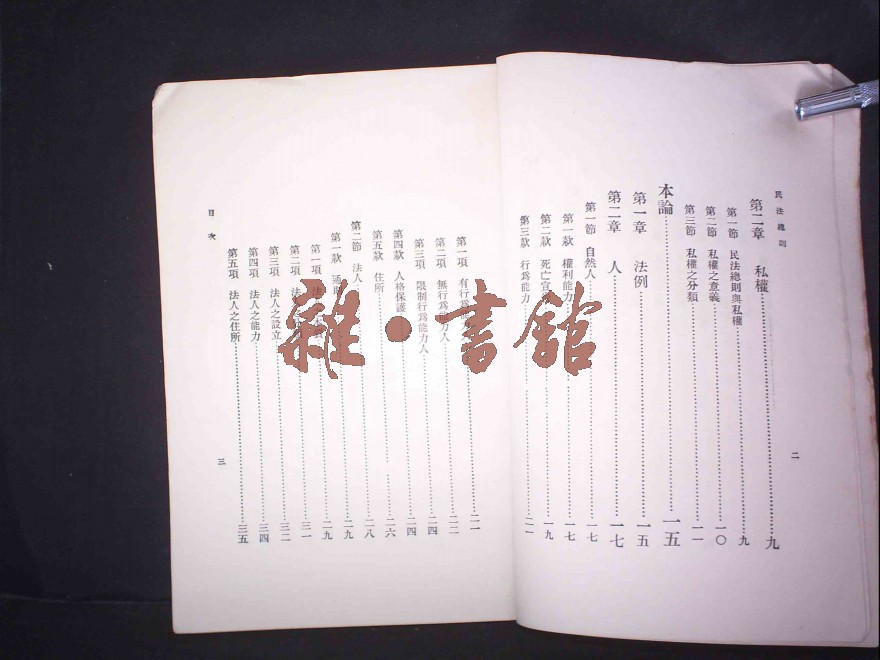 民法總則
第二章 私權………九
第一節 民法總則與私權………九
第二節 私權之意義………一〇
第三節 私權之分類………一一
本論………一五
第一章 法例………一五
第二章 人………一七
第一節 自然人………一七
第一款 權利能力………一七
第二款 死亡宣………一九
第三款 行爲能力………二一
二
第一項 有行爲能力人………二二
第二項 無行爲能力人………二三
第三項 限制行爲能力人………二四
第四款 人格保護………二四
第五款 住所………二六
第二節 法人………二八
第一款 通則………二九
第一項 法………二九
第二項 法………三一
第三項 法人之設立………三二
第四項 法人之能力………三四
第五項 法人之住所………三五
目次
三
雜·書館